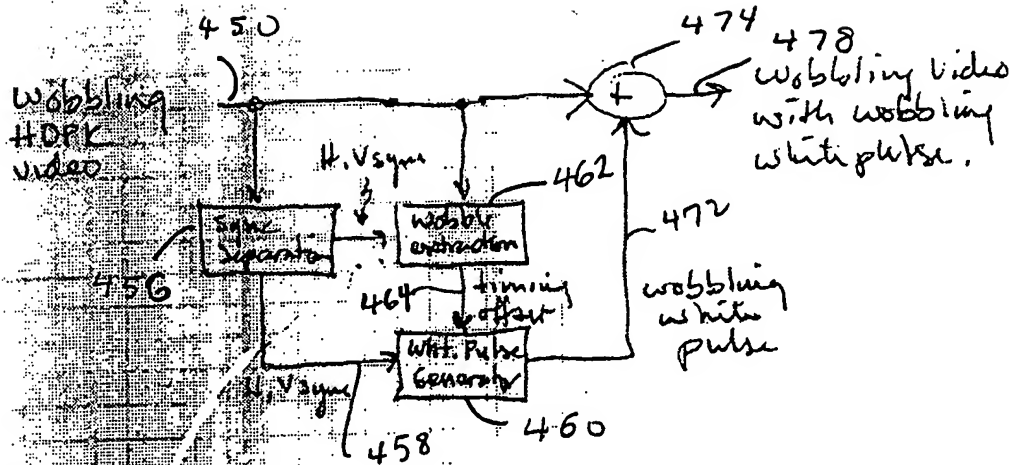 450
474
478
Wobbling
HDPK
video
wobbling video
with wobbling
white pulse.
H, V sync
462
Sync
Separator
wobble
extraction
472
456
464
timing
offset
wobbling
white
pulse
Wht. Pulse
Generator
H, V sync
458
460